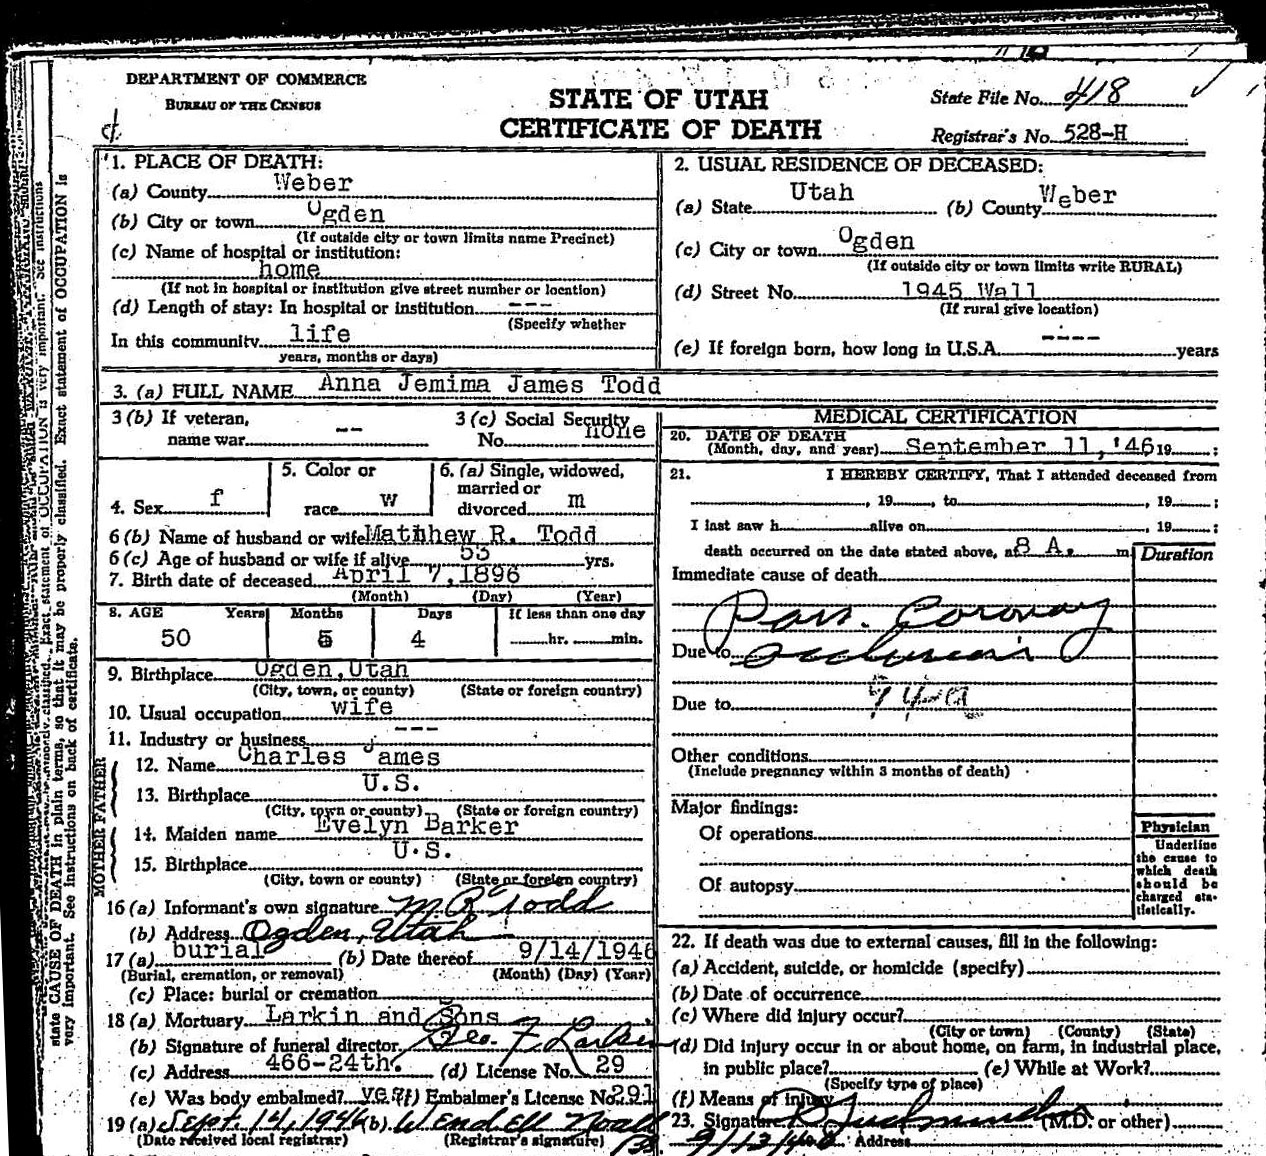 DEPARTMENT OF COMMERCE
BUREAU OF THE CENSUS
STATE OF UTAH
CERTIFICATE OF DEATH
State File No. 418
Registrar's No. 528-H
1. PLACE OF DEATH:
(a) County Weber
(b) City or town Ogden
(If outside city or town limits name Precinct)
(c) Name of hospital or institution:
home
(If not in hospital or institution give street number or location)
(d) Length of stay: In hospital or institution ---
(Specify whether
In this community life
years, months or days)
2. USUAL RESIDENCE OF DECEASED:
(a) State Utah (b) County Weber
(c) City or town Ogden
(If outside city or town limits write RURAL)
(d) Street No. 1945 Wall
(If rural give location)
(e) If foreign born, how long in U.S.A. ---- years
3. (a) FULL NAME Anna Jemima James Todd
3 (b) If veteran,
name war -- 
3 (c) Social Security
No. none
4. Sex f
5. Color or
race w
6. (a) Single, widowed,
married or
divorced m
6 (b) Name of husband or wife Matthew R. Todd
6 (c) Age of husband or wife if alive 53 yrs.
7. Birth date of deceased April 7, 1896
(Month) (Day) (Year)
8. AGE Years Months Days If less than one day
50 5 4 hr. min.
9. Birthplace Ogden, Utah
(City, town, or county) (State or foreign country)
10. Usual occupation wife
11. Industry or business ---
FATHER
12. Name Charles James
13. Birthplace U.S.
(City, town or county) (State or foreign country)
MOTHER
14. Maiden name Evelyn Barker
15. Birthplace U.S.
(City, town or county) (State or foreign country)
16 (a) Informant's own signature M R Todd
(b) Address Ogden, Utah
17 (a) burial (b) Date thereof 9/14/1946
(Burial, cremation, or removal) (Month) (Day) (Year)
(c) Place: burial or cremation
18 (a) Mortuary Larkin and Sons
(b) Signature of funeral director Geo. F Larkin
(c) Address 466-24th. (d) License No. 29
(e) Was body embalmed? yes (f) Embalmer's License No. 291
19 (a) Sept. 14, 1946 (b) Wendell Noall
(Date received local registrar) (Registrar's signature)
MEDICAL CERTIFICATION
20. DATE OF DEATH
(Month, day, and year) September 11, '46 19 ;
21. I HEREBY CERTIFY, That I attended deceased from
, 19 , to , 19 ;
I last saw h alive on , 19 ;
death occurred on the date stated above, at 8 A. m.
Duration
Immediate cause of death
Coronary
Due to occlusion
Due to 94a
Other conditions
(Include pregnancy within 3 months of death)
Major findings:
Of operations
Of autopsy
Physician
Underline
the cause to
which death
should be
charged sta-
tistically.
22. If death was due to external causes, fill in the following:
(a) Accident, suicide, or homicide (specify)
(b) Date of occurrence
(c) Where did injury occur?
(City or town) (County) (State)
(d) Did injury occur in or about home, on farm, in industrial place,
in public place? (e) While at Work?
(Specify type of place)
(f) Means of injury
23. Signature (M.D. or other)
9/13/46 Address
state CAUSE OF DEATH in plain terms, so that it may be properly classified. Exact statement of OCCUPATION is
very important. See instructions on back of certificate.